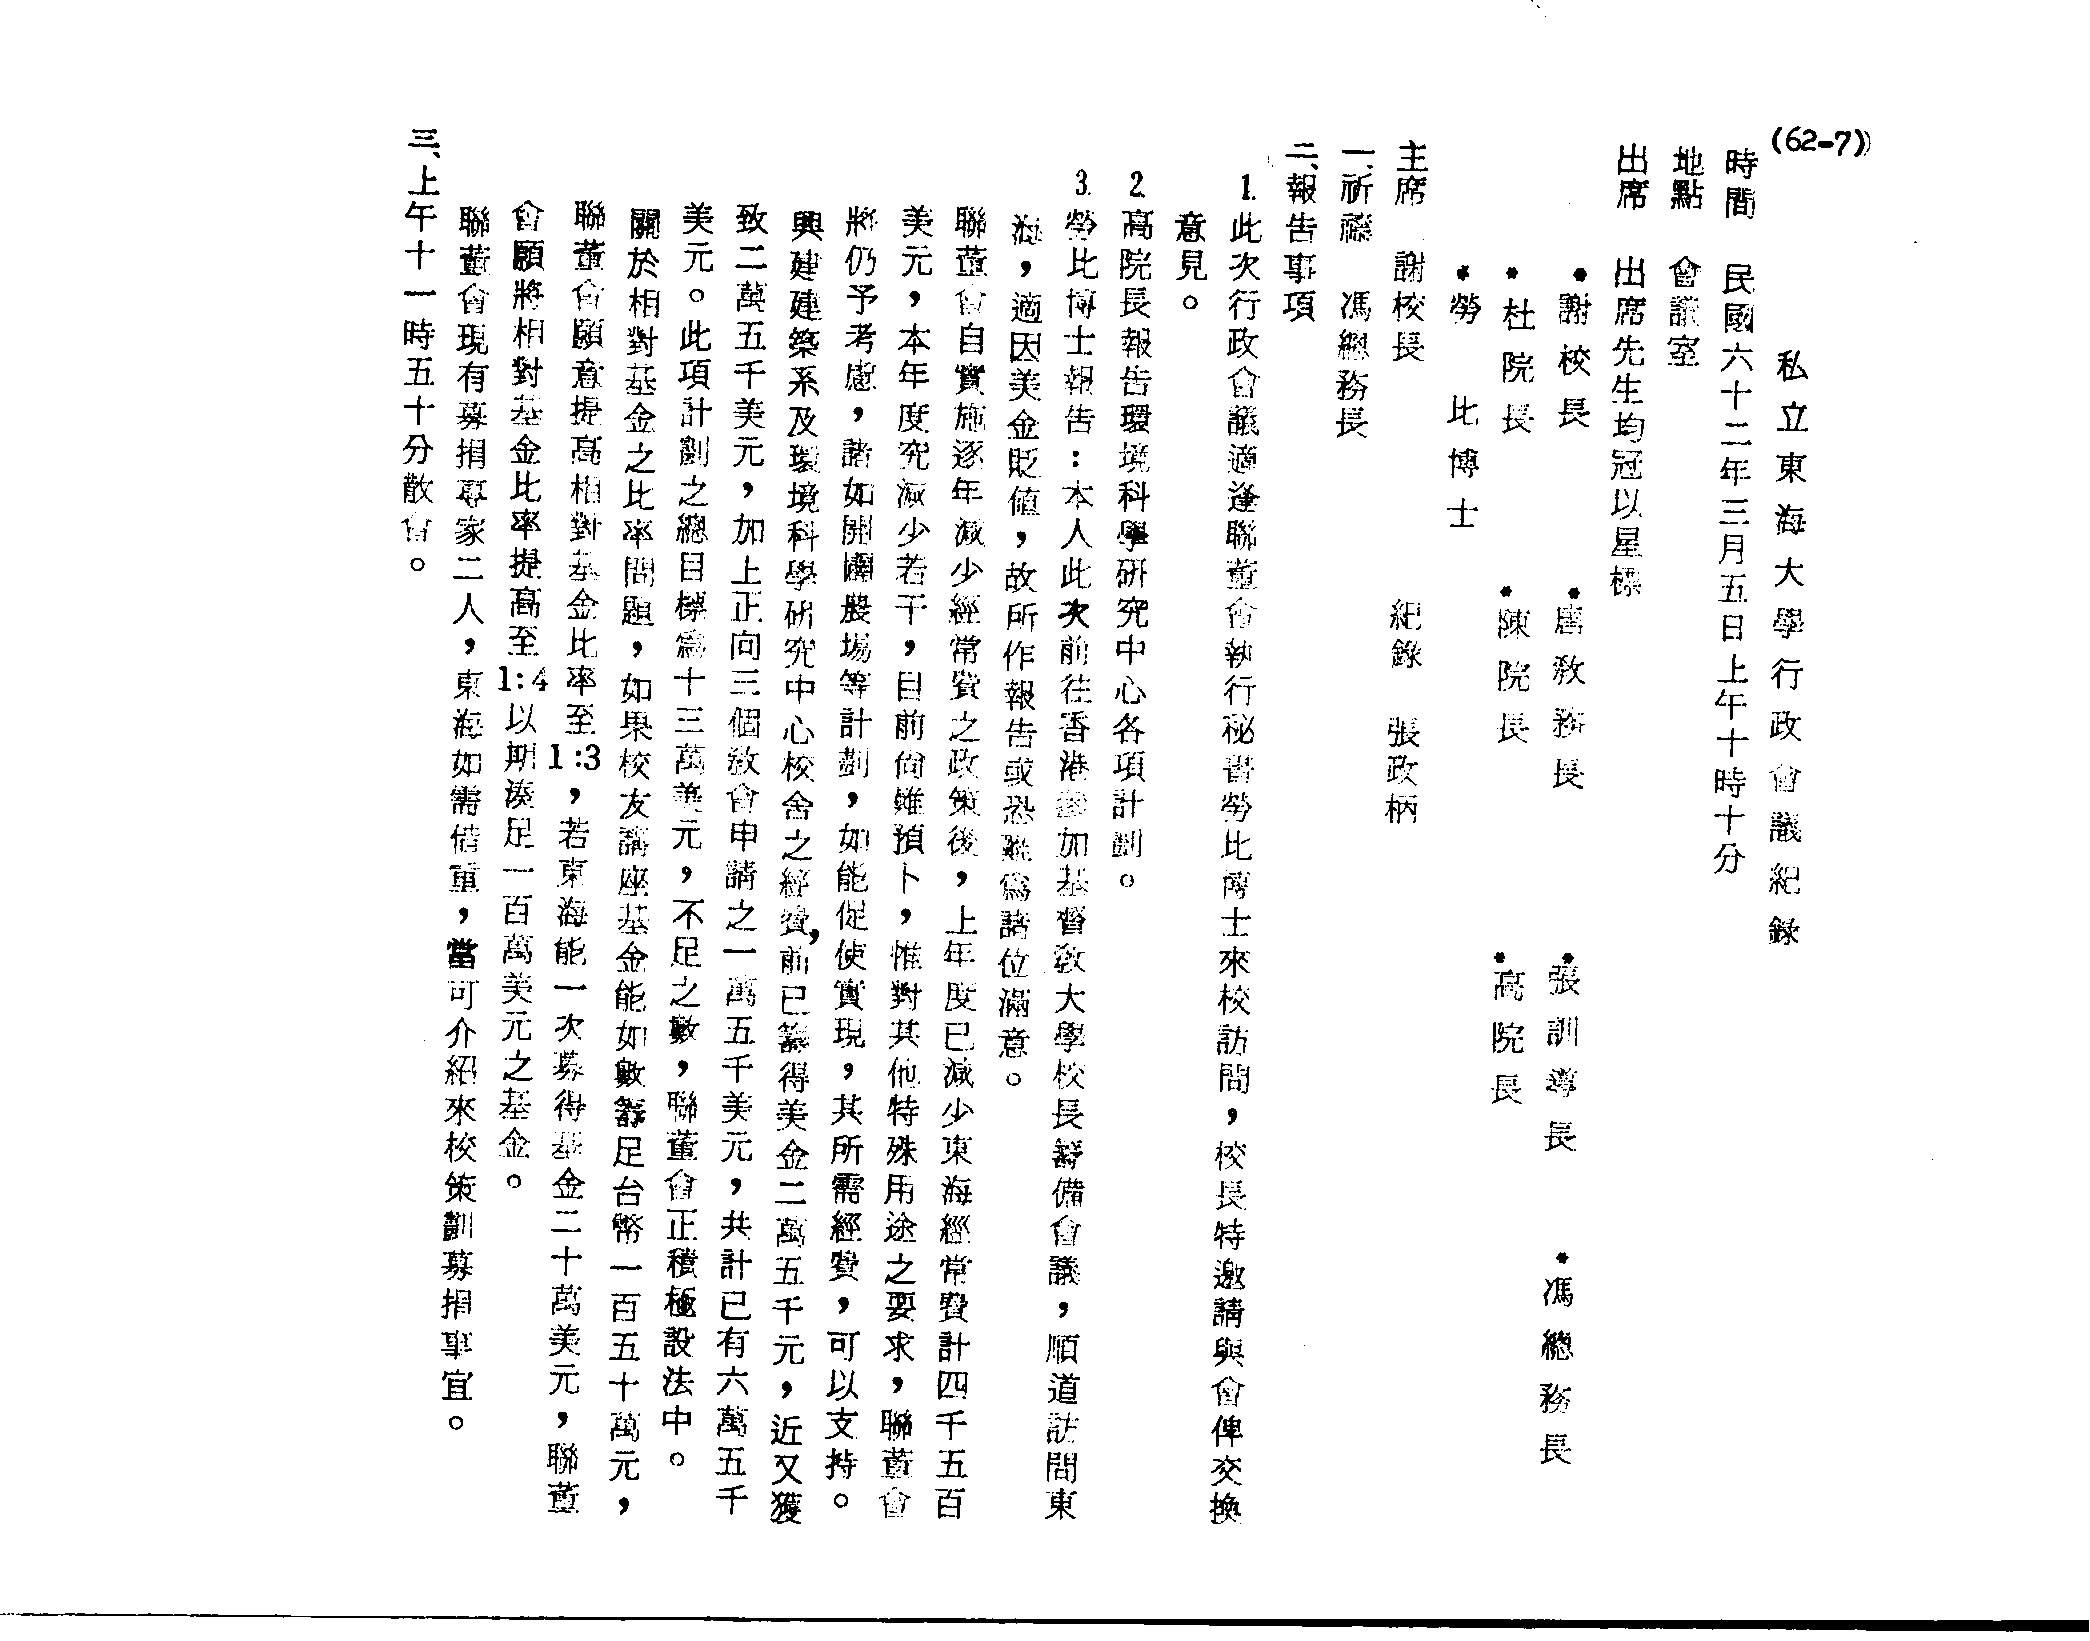 (62-7)
私立東海大學行政會議紀錄
時間 民國六十二年三月五日上午十時十分
地點 會議室
出席 出席先生均冠以星標
*謝校長 *唐教務長 *張訓導長 *馮總務長
*杜院長 *陳院長 *高院長
*勞 比博士
主席 謝校長 紀錄 張政柄
一、祈禱 馮總務長
二、報告事項
1.此次行政會議適逢聯董會執行秘書勞比博士來校訪問，校長特邀請與會俾交換
意見。
2.高院長報告環境科學研究中心各項計劃。
3.勞比博士報告:本人此次前往香港參加基督教大學校長籌備會議，順道訪問東
海，適因美金貶值，故所作報告或恐難為諸位滿意。
聯董會自實施逐年減少經常費之政策後，上年度已減少東海經常費計四千五百
美元，本年度究減少若干，目前尚難預卜，惟對其他特殊用途之要求，聯董會
將仍予考慮，諸如開闢農場等計劃，如能促使實現，其所需經費，可以支持。
興建建築系及環境科學研究中心校舍之經費，前已籌得美金二萬五千元，近又獲
致二萬五千美元，加上正向三個教會申請之一萬五千美元，共計已有六萬五千
美元。此項計劃之總目標為十三萬美元，不足之數，聯董會正積極設法中。
關於相對基金之比率問題，如果校友講座基金能如數籌足台幣一百五十萬元，
聯董會願意提高相對基金比率至1:3，若東海能一次募得基金二十萬美元，聯董
會願將相對基金比率提高至1:4以期湊足一百萬美元之基金。
聯董會現有募捐專家二人，東海如需借重，當可介紹來校策劃募捐事宜。
三、上午十一時五十分散會。